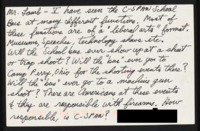 Mr. Lamb - I have seen the C-SPAN School
Bus at many different functions. Most of
these functions are of a "liberal arts" format.
Museums, Speeches, technology shows etc.
Will the School bus ever show up at a shoot
or trap shoot? Will the "bus" ever go to
Camp Perry, Ohio for the shooting events there?
Will the "bus" ever go to a machine gun
shoot? There are Americans at these events
& they are responsible with firearms. How
responsible is C-SPAN?